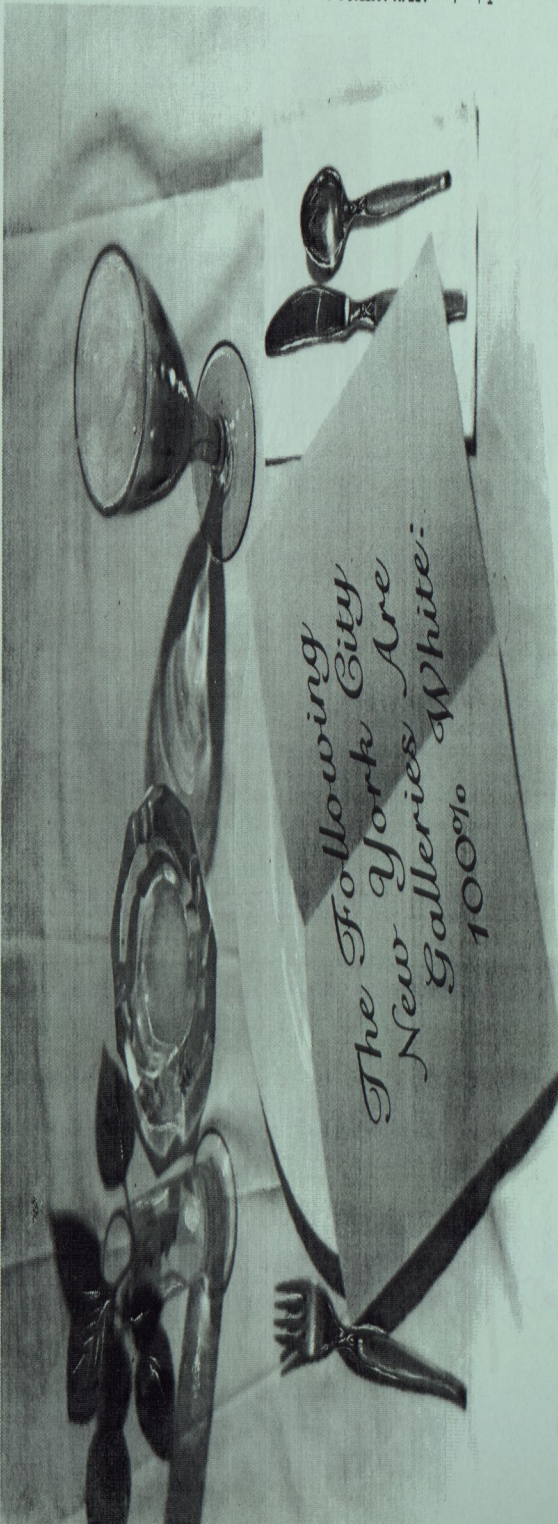 The Following
New York City
Galleries Are
100% White: